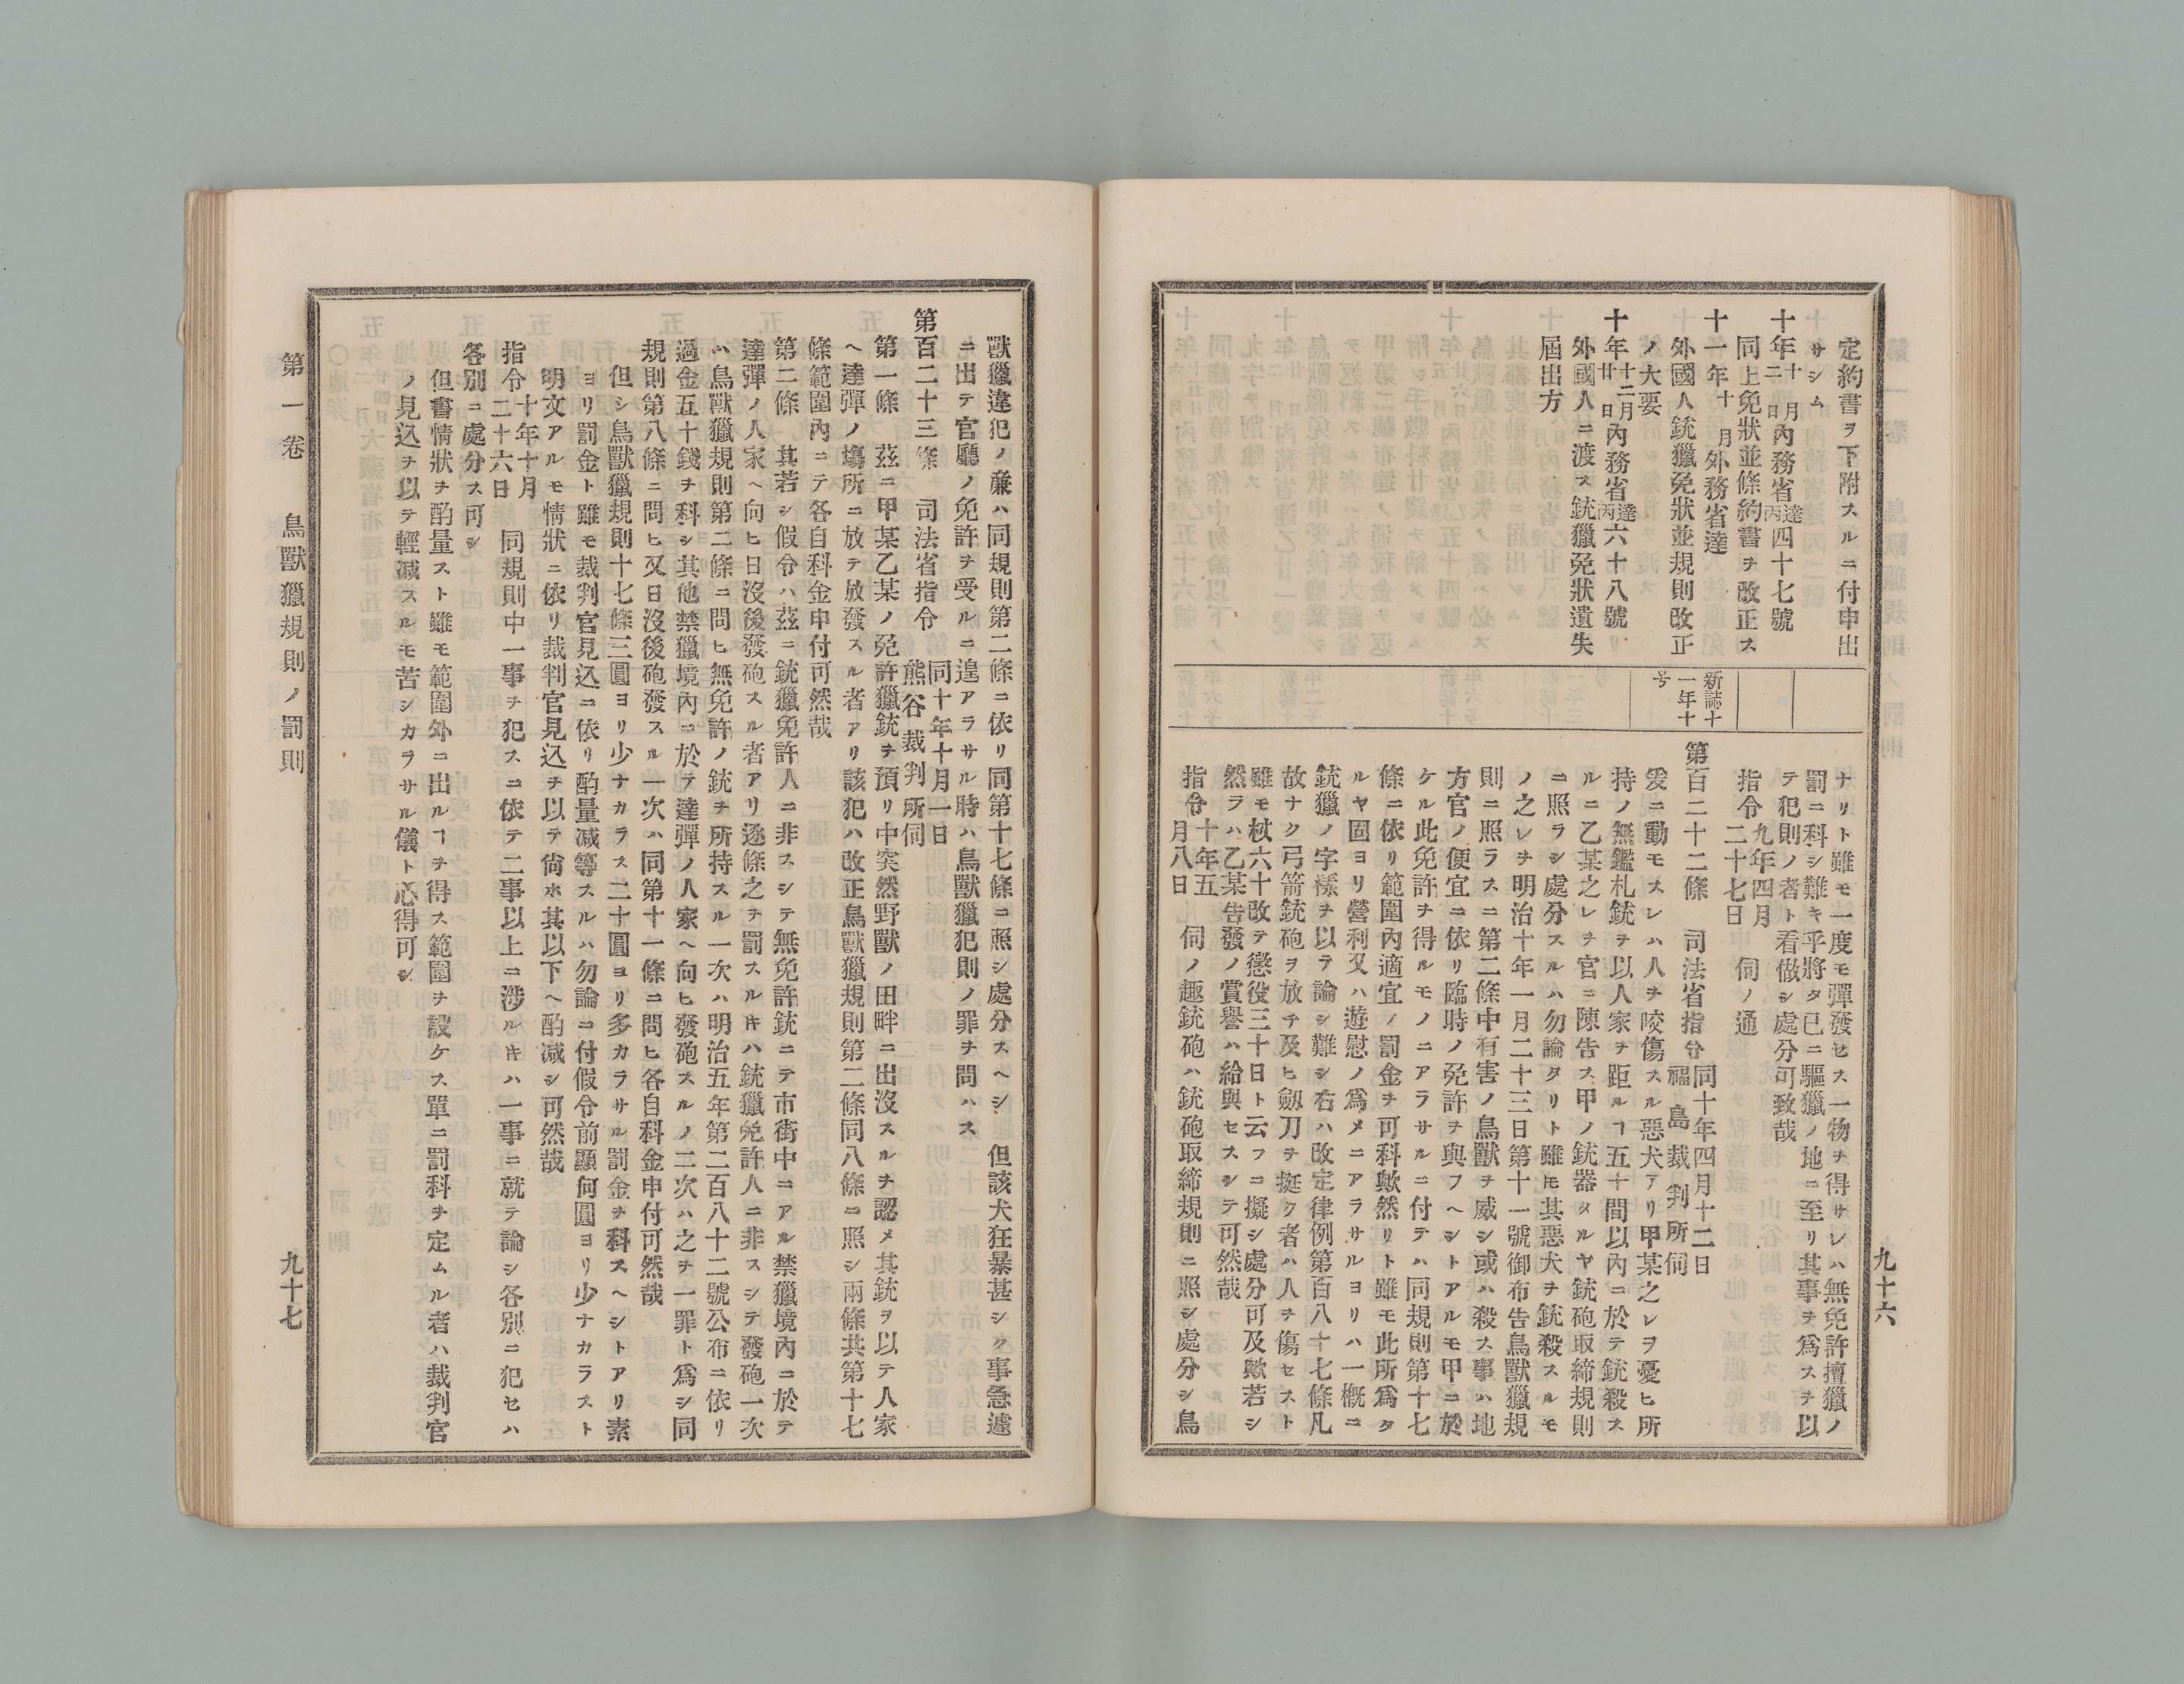 定約書ヲ下附スルニ付申出
サシム
十年十二月　日內務省達丙四十七號
同上免狀並條約書ヲ改正ス
十一年十月外務省達
外國人銃獵免狀並規則改正
ノ大要
十年十二月廿　日內務省達丙六十八號
外國人ニ渡ス銃獵免狀遺失
屆出方
新誌十
一年十
号
ナリト雖モ一度モ彈發セス一物ヲ得サレハ無免許擅獵ノ
罰ニ科シ難キ乎將タ已ニ驅獵ノ地ニ至リ其事ヲ爲スヲ以
テ犯則ノ者ト看做シ處分可致哉
指令九年四月二十七日　伺ノ通
第百二十二條　司法省指令　同十年四月十二日福島裁判所伺
爰ニ動モスレハ人ヲ咬傷スル惡犬アリ甲某之レヲ憂ヒ所
持ノ無鑑札銃ヲ以人家ヲ距ルヿ五十間以內ニ於テ銃殺ス
ルニ乙某之レヲ官ニ陳告ス甲ノ銃器タルヤ銃砲取締規則
ニ照ラシ處分スルハ勿論タリト雖㪳其惡犬ヲ銃殺スルモ
ノ之レヲ明治十年一月二十三日第十一號御布告鳥獸獵規
則ニ照ラスニ第二條中有害ノ鳥獸ヲ威シ或ハ殺ス事ハ地
方官ノ便宜ニ依リ臨時ノ免許ヲ與フヘシトアルモ甲ニ於
ケル此免許ヲ得ルモノニアラサルニ付テハ同規則第十七
條ニ依リ範圍內適宜ノ罰金ヲ可科歟然リト雖モ此所爲タ
ルヤ固ヨリ營利又ハ遊慰ノ爲メニアラサルヨリハ一概ニ
銃獵ノ字樣ヲ以テ論シ難シ右ハ改定律例第百八十七條凡
故ナク弓箭銃砲ヲ放チ及ヒ劔刀ヲ挺ク者ハ人ヲ傷セスト
雖モ杖六十改テ懲役三十日ト云フニ擬シ處分可及歟若シ
然ラハ乙某告發ノ賞譽ハ給與セスシテ可然哉
指令十年五月八日　伺ノ趣銃砲ハ銃砲取締規則ニ照シ處分シ鳥
九十六
獸獵違犯ノ廉ハ同規則第二條ニ依リ同第十七條ニ照シ處分スヘシ　但該犬狂暴甚シク事急遽
ニ出テ官廳ノ免許ヲ受ルニ遑アラサル時ハ鳥獸獵犯則ノ罪ヲ問ハス
第百二十三條　司法省指令　同十年十月一日熊谷裁判所伺
第一條　茲ニ甲某乙某ノ免許獵銃ヲ預リ中突然野獸ノ田畔ニ出沒スルヲ認メ其銃ヲ以テ人家
ヘ達彈ノ塲所ニ放テ放發スル者アリ該犯ハ改正鳥獸獵規則第二條同八條ニ照シ兩條共第十七
條範圍內ニテ各自科金申付可然哉
第二條　其若シ假令ハ茲ニ銃獵免許人ニ非スシテ無免許銃ニテ市街中ニアル禁獵境內ニ於テ
達彈ノ人家ヘ向ヒ日沒後發砲スル者アリ逐條之ヲ罰スルキハ銃獵免許人ニ非スシテ發砲一次
ハ鳥獸獵規則第二條ニ問ヒ無免許ノ銃ヲ所持スル一次ハ明治五年第二百八十二號公布ニ依リ
過金五十錢ヲ科シ其他禁獵境內ニ於テ達彈ノ人家ヘ向ヒ發砲スルノ二次ハ之ヲ一罪ト爲シ同
規則第八條ニ問ヒ又日沒後砲發スル一次ハ同第十一條ニ問ヒ各自科金申付可然哉
但シ鳥獸獵規則十七條三圓ヨリ少ナカラス二十圓ヨリ多カラサル罰金ヲ科スヘシトアリ素
ヨリ罰金ト雖モ裁判官見込ニ依リ酌量減等スルハ勿論ニ付假令前顯何圓ヨリ少ナカラスト
明文アルモ情狀ニ依リ裁判官見込ヲ以テ尙ホ其以下ヘ酌減シ可然哉
指令十年十月二十六日　同規則中一事ヲ犯スニ依テ二事以上ニ涉ルキハ一事ニ就テ論シ各別ニ犯セハ
各別ニ處分ス可シ
但書情狀ヲ酌量スト雖モ範圍外ニ出ルヿヲ得ス範圍ヲ設ケス單ニ罰科ヲ定ムル者ハ裁判官
ノ見込ヲ以テ輕減スルモ苦シカラサル儀ト心得可シ
第一卷　鳥獸獵規則ノ罰則
九十七